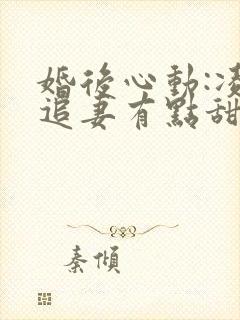 婚後心動:凌
追妻有點甜
秦傾